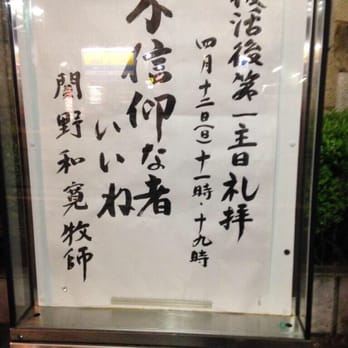 復活後第一主日礼拝
四月十二日(日)十一時・十九時
不信仰な者
いいね
関野和寛牧師